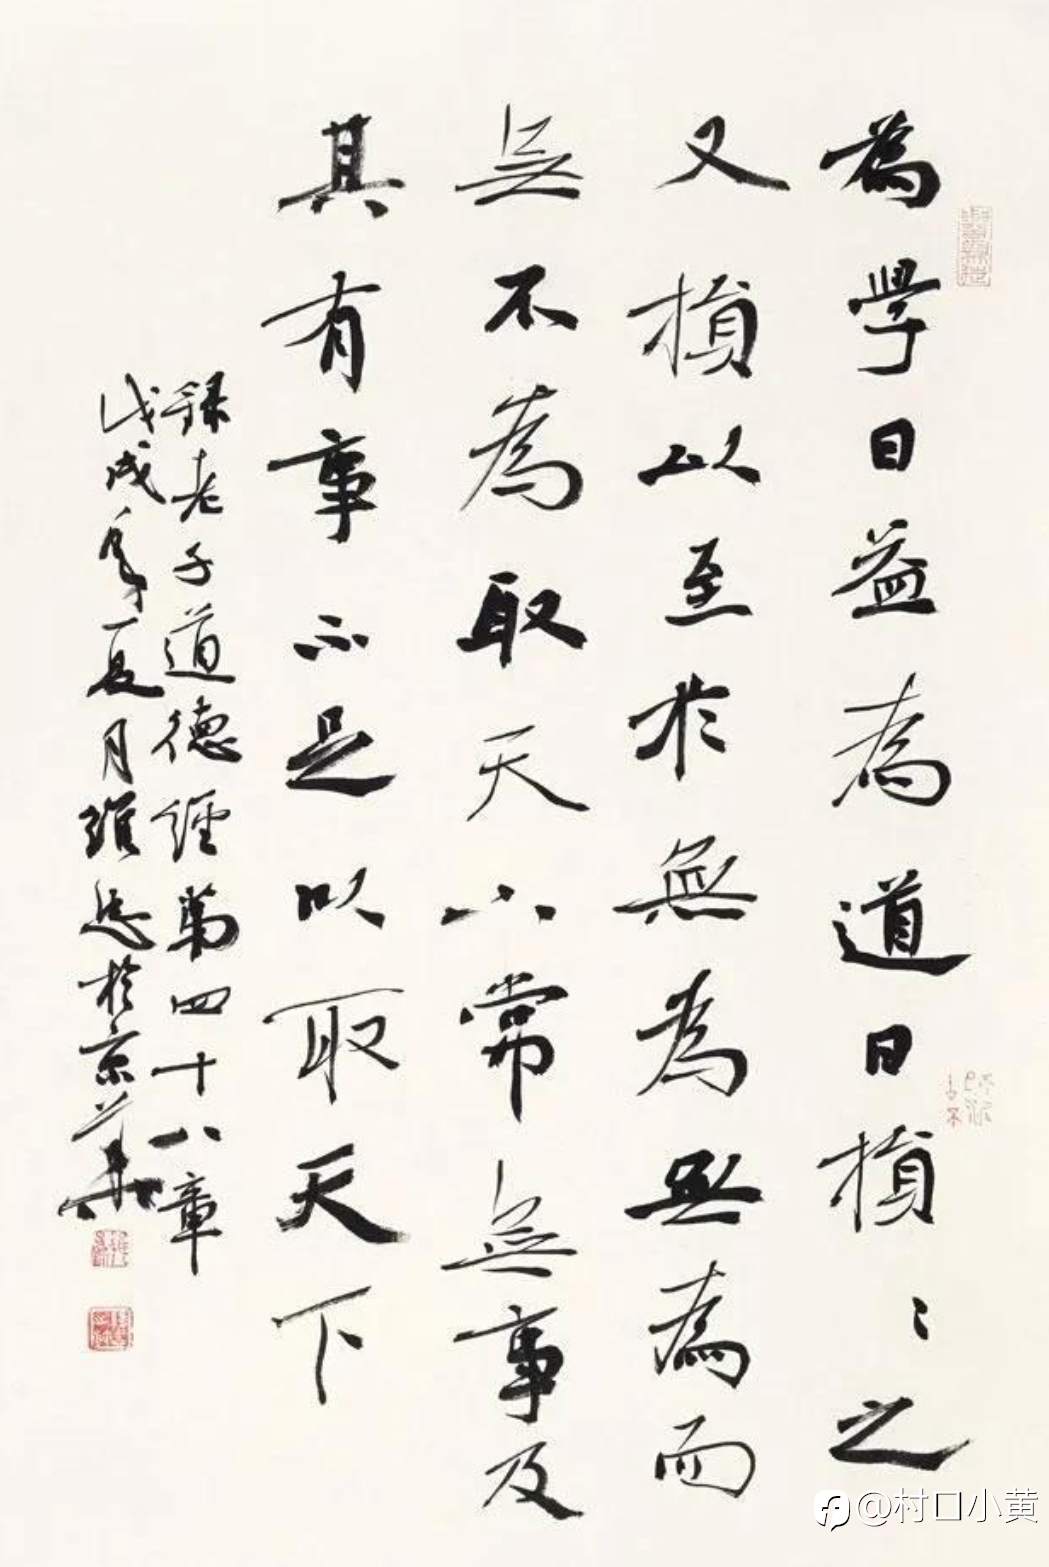 為學日益為道日損〻之
又損以至於無為無為而
無不為取天下常無事及
其有事不足以取天下
錄老子道德經第四十八章
戊戌年夏月維忠於京華
@村口小黄